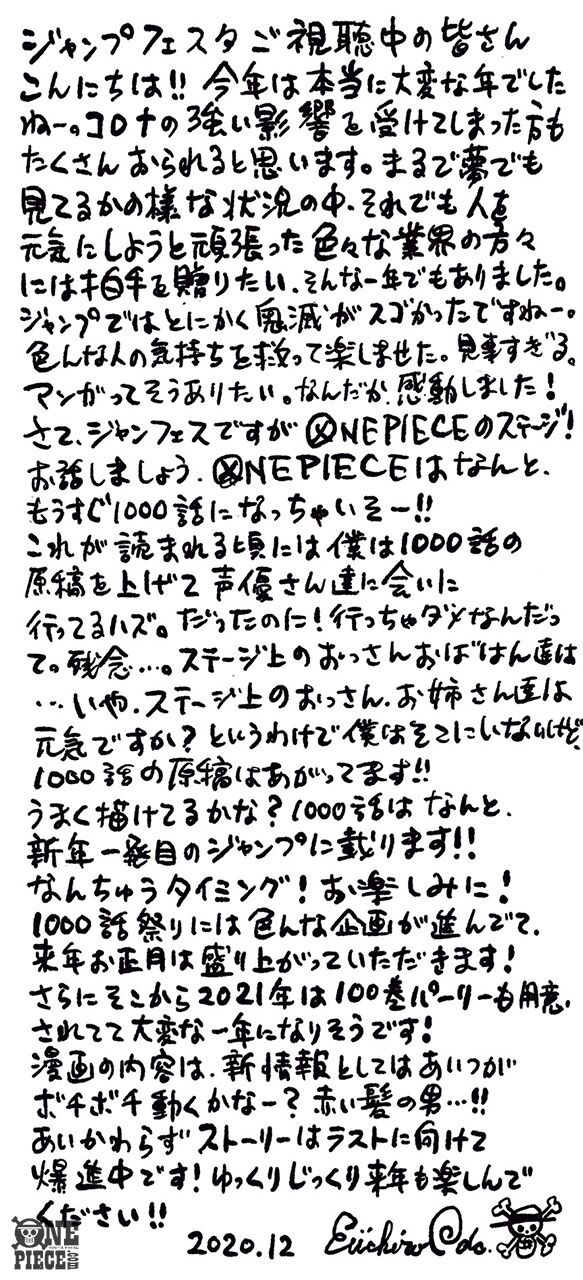 ジャンプフェスタご視聴中の皆さん
こんにちは!! 今年は本当に大変な年でした
ねー。コロナの強い影響を受けてしまった方も
たくさんおられると思います。まるで夢でも
見てるかの様な状況の中、それでも人を
元気にしようと頑張った色々な業界の方々
には拍手を贈りたい、そんな一年でもありました。
ジャンプではとにかく鬼滅がスゴかったですねー。
色んな人の気持ちを救って楽しませた。見事すぎる。
マンガってそうありたい。なんだか感動しました!
さて、ジャンフェスですが ONE PIECEのステージ!
お話しましょう、ONE PIECEはなんと、
もうすぐ1000話になっちゃいそー!!
これが読まれる頃には僕は1000話の
原稿を上げて声優さん達に会いに
行ってるハズ。だったのに!行っちゃダメなんだっ
て。残念…。ステージ上のおっさんおばはん達は
…いや、ステージ上のおっさん、お姉さん達は
元気ですか?というわけで僕はそこにいないけど、
1000話の原稿はあがってます!!
うまく描けてるかな?1000話はなんと、
新年一発目のジャンプに載ります!!
なんちゅうタイミング!お楽しみに!
1000話祭りには色んな企画が進んでて、
来年お正月は盛り上がっていただきます!
さらにそこから2021年は100巻パーリーも用意、
されてて大変な一年になりそうです!
漫画の内容は、新情報としてはあいつが
ボチボチ動くかなー?赤い髪の男…!!
あいかわらずストーリーはラストに向けて
爆進中です!ゆっくりじっくり来年も楽しんで
ください!!
2020.12 Eiichiro Oda.
ONE
PIECE.COM